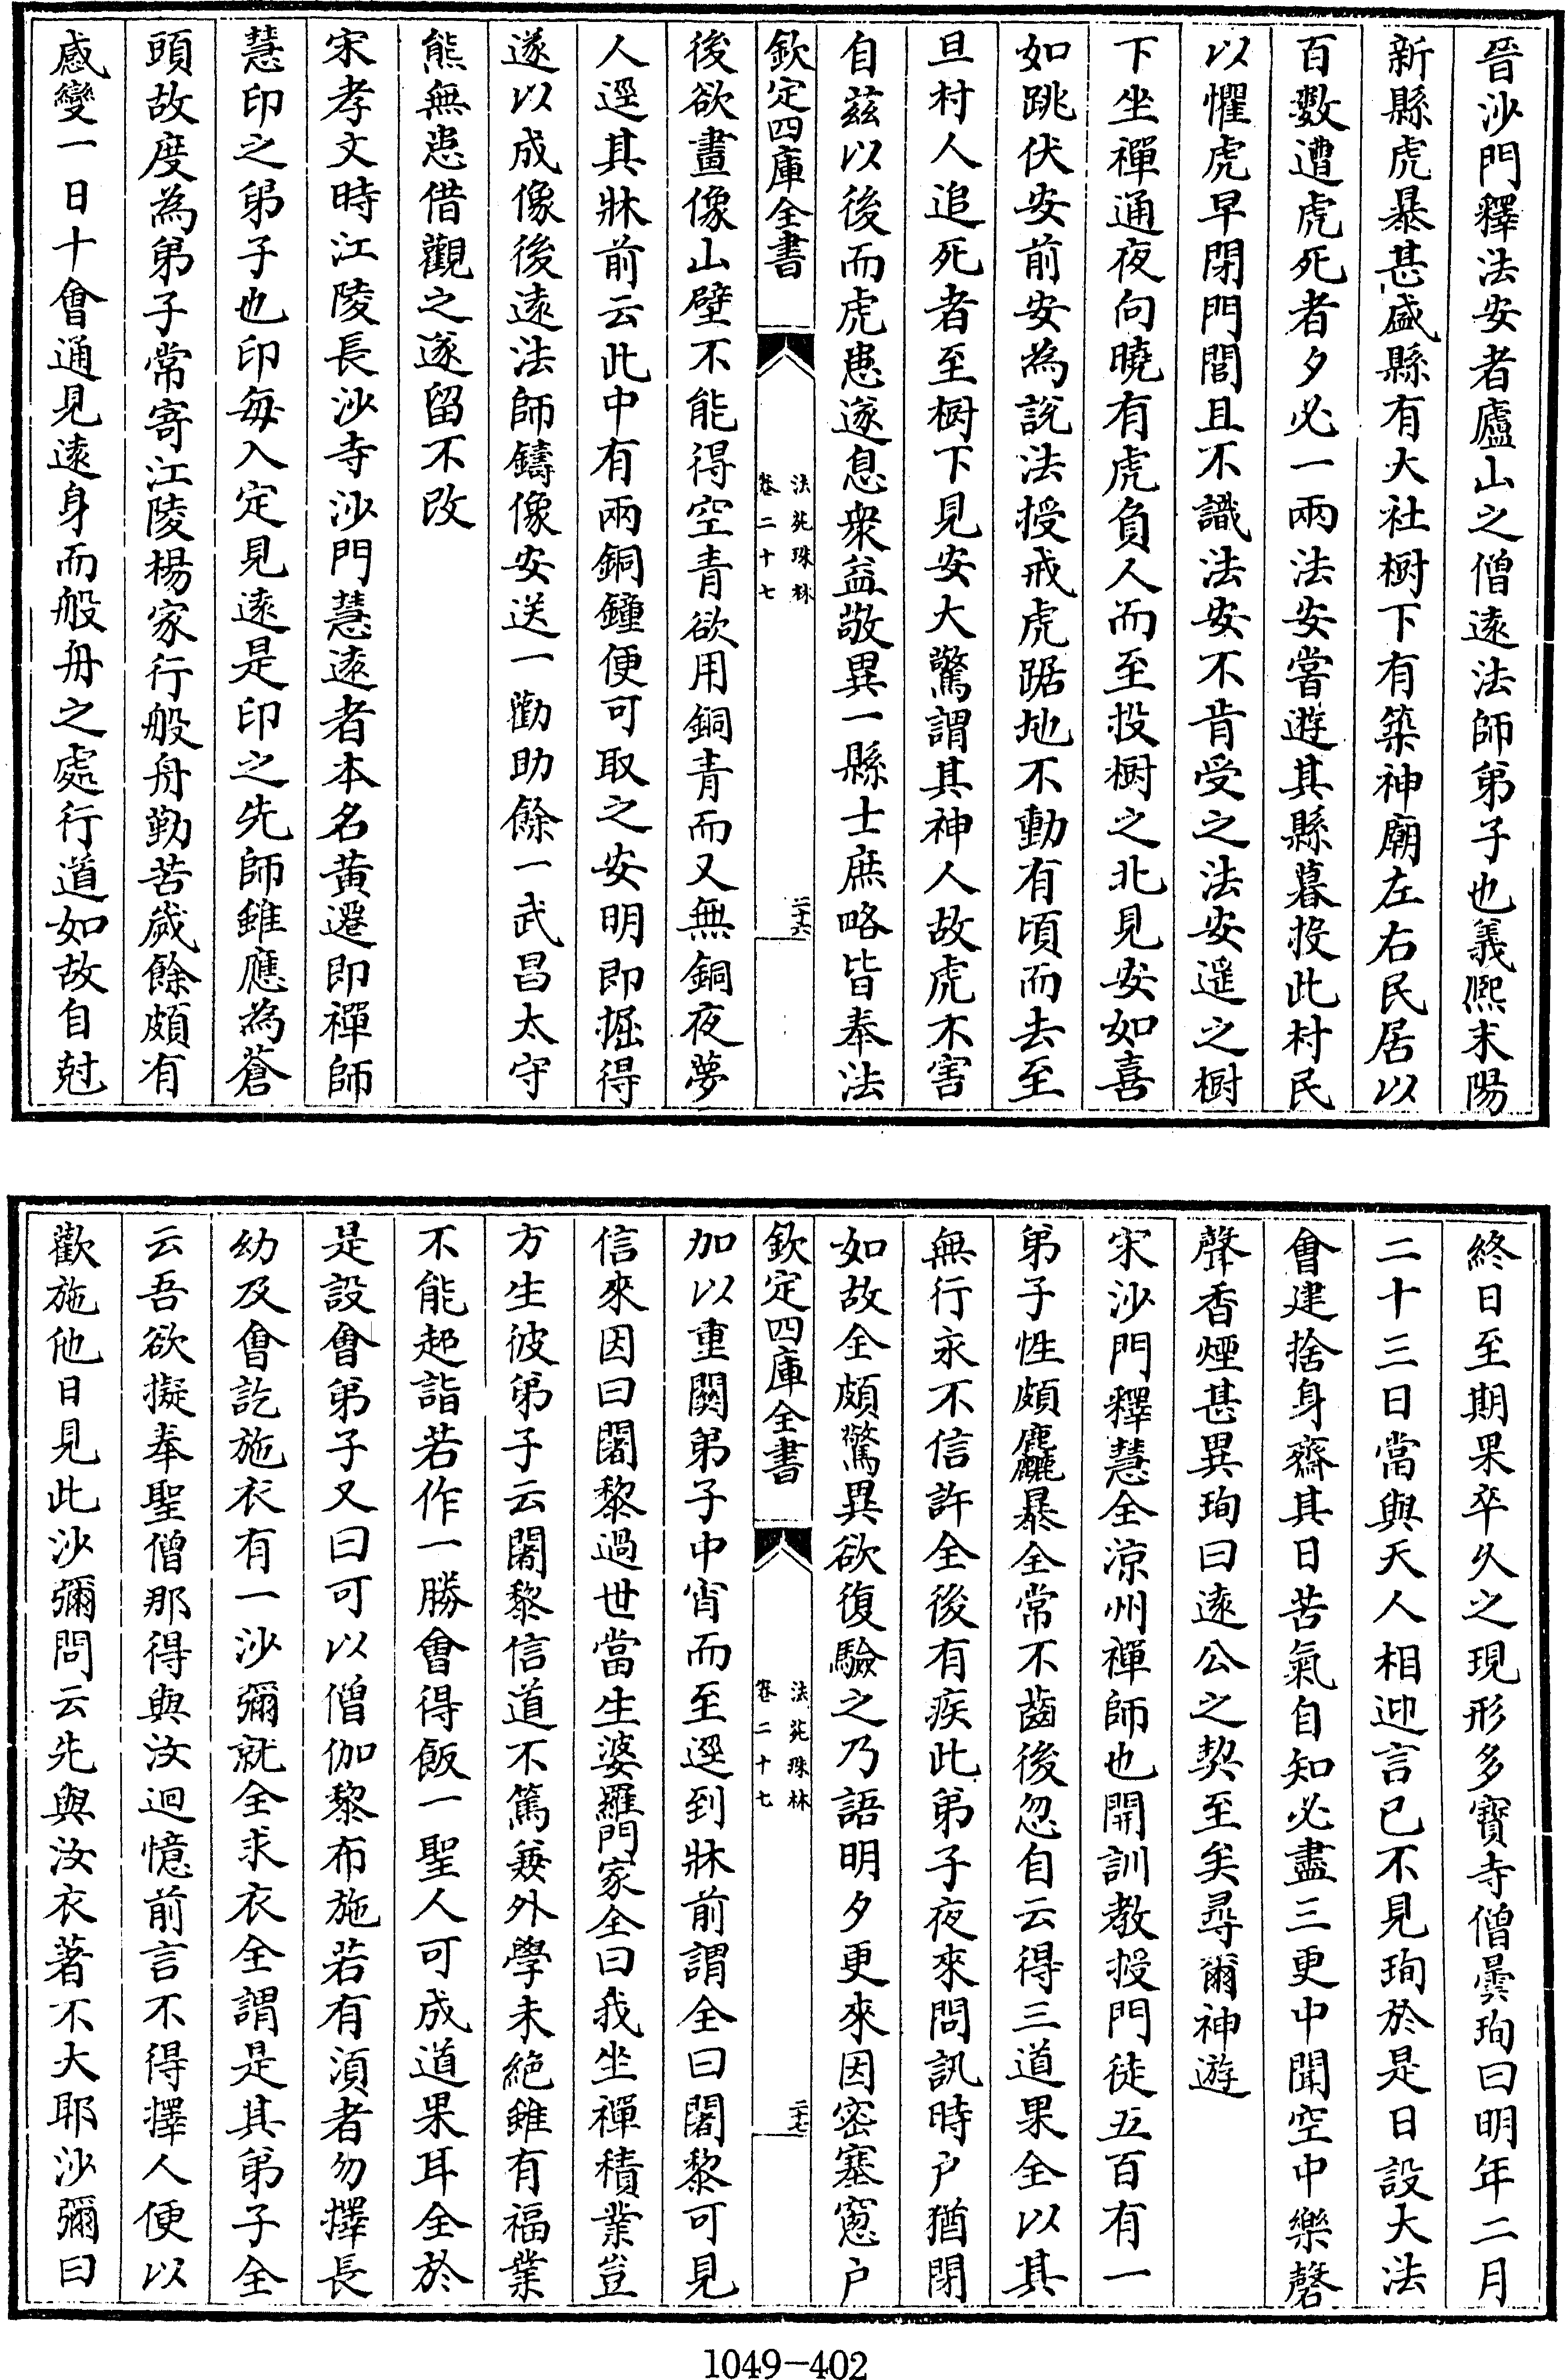 晉沙門釋法安者廬山之僧逺法師弟子也義熈末陽
新縣虎暴甚盛縣有大社樹下有築神廟左右民居以
百數遭虎死者夕必一兩法安嘗遊其縣暮投此村民
以懼虎早閉門閭且不識法安不肯受之法安遥之樹
下坐禪通夜向曉有虎負人而至投樹之北見安如喜
如跳伏安前安為說法授戒虎踞地不動有頃而去至
旦村人追死者至樹下見安大驚謂其神人故虎不害
自兹以後而虎患遂息衆益敬異一縣士庶略皆奉法
欽定四庫全書
法苑珠林
卷二十七
二十六
後欲畫像山壁不能得空青欲用銅青而又無銅夜夢
人逕其牀前云此中有兩銅鐘便可取之安明即掘得
遂以成像後逺法師鑄像安送一勸助餘一武昌太守
熊無患借觀之遂留不改
宋孝文時江陵長沙寺沙門慧逺者本名黄遷即禪師
慧印之弟子也印每入定見逺是印之先師雖應為蒼
頭故度為弟子常寄江陵楊家行般舟勤苦歲餘頗有
感變一日十㑹通見逺身而般舟之處行道如故自尅
終日至期果卒久之現形多寶寺僧曇珣曰明年二月
二十三日當與天人相迎言已不見珣於是日設大法
㑹建捨身齋其日苦氣自知必盡三更中聞空中樂磬
聲香煙甚異珣曰逺公之契至矣尋爾神遊
宋沙門釋慧全凉州禪師也開訓教授門徒五百有一
弟子性頗麤暴全常不齒後忽自云得三道果全以其
無行永不信許全後有疾此弟子夜來問訊時户猶閉
如故全頗驚異欲復驗之乃語明夕更來因密塞窓户
欽定四庫全書
法苑珠林
卷二十七
二十七
加以重闗弟子中宵而至逕到牀前謂全曰闍黎可見
信來因曰闍黎過世當生婆羅門家全曰我坐禪積業豈
方生彼弟子云闍黎信道不篤兼外學未絶雖有福業
不能超詣若作一勝㑹得飯一聖人可成道果耳全於
是設㑹弟子又曰可以僧伽黎布施若有湏者勿擇長
幼及㑹訖施衣有一沙彌就全求衣全謂是其弟子全
云吾欲擬奉聖僧那得與汝迴憶前言不得擇人便以
歡施他日見此沙彌問云先與汝衣著不大耶沙彌曰
1049-402